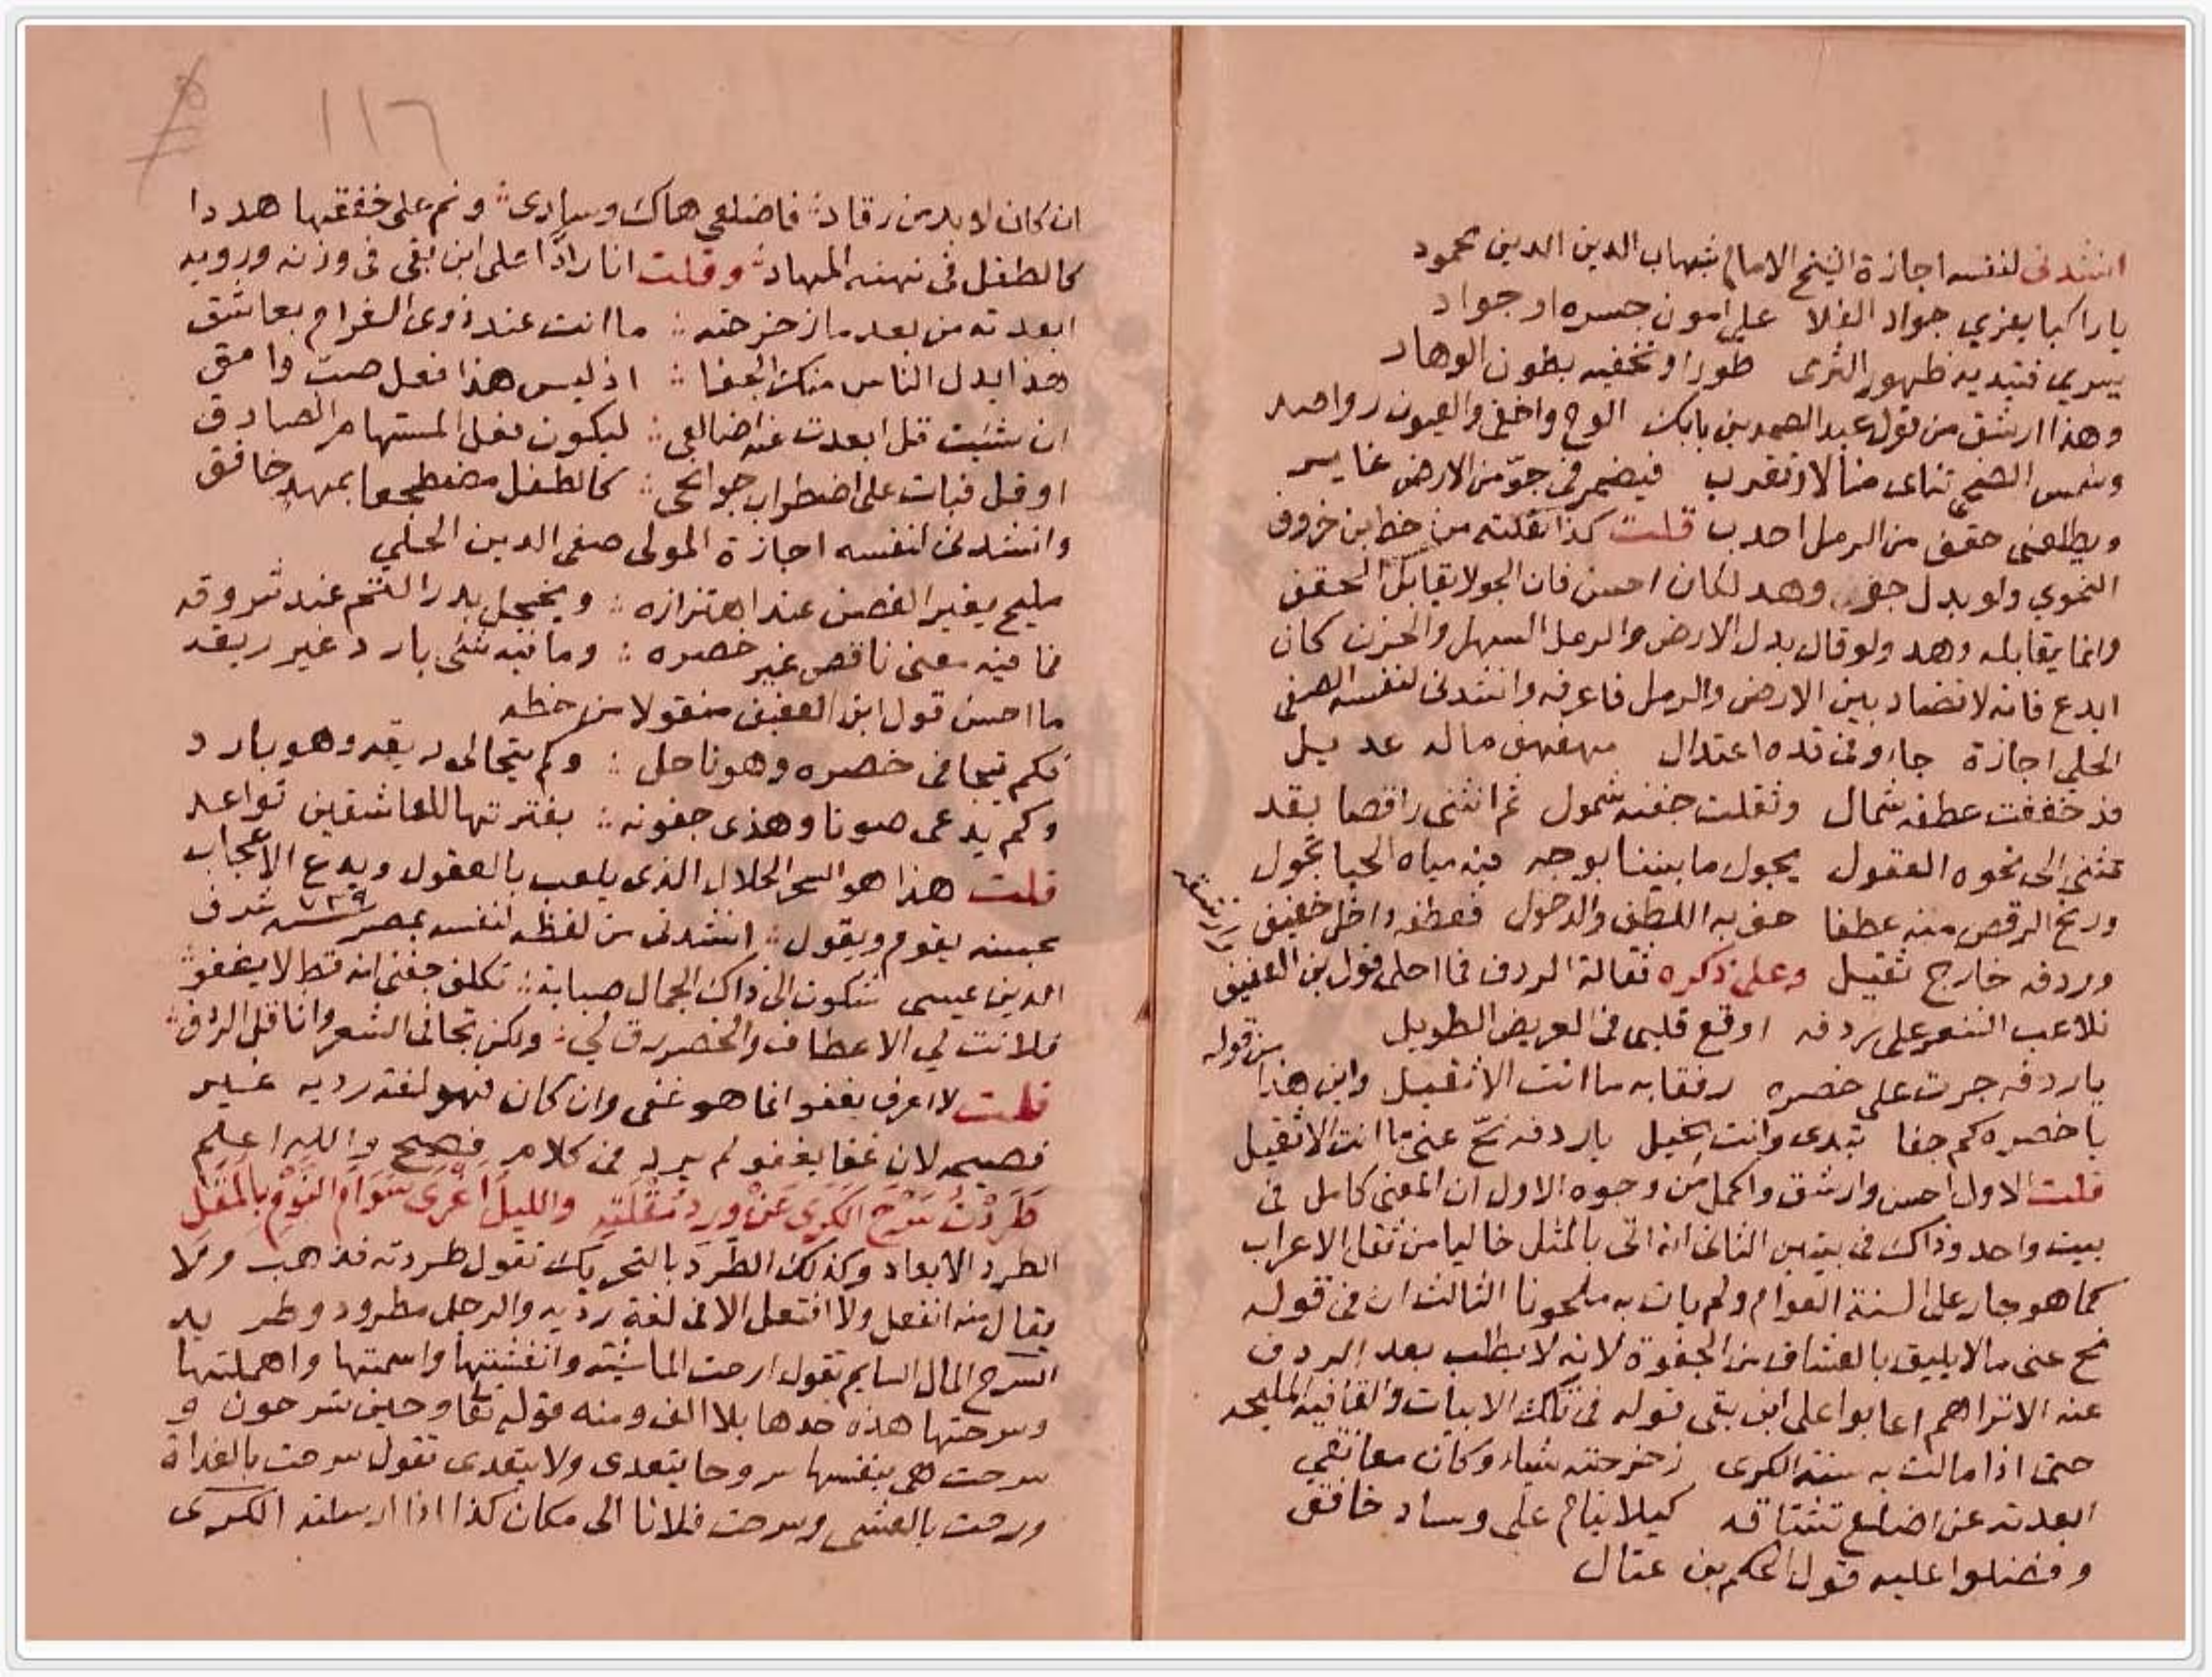 انشدنى لنفسه اجازة الشيخ الامام شهاب الدين الدين محمود
ياراكبا يفري جواد الفلا على امون جسره او جواد
يسري فتبديه ظهور الثرى طورا وتخفيه بطون الوهاد
وهذا ارشق من قول عبد الصمد بن بابك الوح واخفى والعيون رواصد
وشمس الضحى تناى منالا وتقرب فيضمرنى جوّ من الارض غاير
ويطلعنى حقف من الرمل احدب قلت كذا نقلته من خط ابن خروف
النحوي ولو بدل جو وهد لكان احسن فان الجو لا يقابل الحقف
وانما يقابله وهد ولو قال بدل الارض والرمل السهل والحزن كان
ابدع فانه لا تضاد بين الارض والرمل فاعرفه وانشدنى لنفسه الصفى
الحلي اجازة جا وفى قده اعتدال مهفهف ماله عديل
قد خففت عطفه شمال وثقلت جفنه شمول ثم انثنى راقصا بقد
تثنى الى نحوه العقول يجول ما بيننا بوجه فيه مياه الحيا تجول
ورنح الرقص منه عطفا حف به اللطف والدخول فعطفه داخل خفيف
وردفه خارج ثقيل وعلى ذكره ثقالة الردف فما احلى قول بن العفيف
تلاعب الشعر على ردفه اوقع قلبى فى العريض الطويل
ياردفه جرت على خصره رفقا به ما انت الا ثقيل واين هذا من قوله
يا خصره كم جفا تبدى وانت نحيل ياردفه نحّ عنى ما انت الا ثقيل
قلت الاول احسن وارشق واكمل من وجوه الاول ان المعنى كامل فى
بيت واحد وذاك فى بيتين الثانى انه اتى بالمثل خاليا من ثقل الاعراب
كما هو جار على السنة العوام ولم يات به ملحونا الثالث ان فى قوله
نح عنى مالا يليق بالعشاق من الجفوة لانه لا يطلب بعد الردف
عنه الا تراهم اعابوا على ابن بقى قوله فى تلك الابيات والقافية المليحه
حتى اذا مالت به سنة الكرى زحزحته شيأ وكان معانقى
ابعدته عن اضلع تشتاقه كيلا ينام على وساد خافق
وفضلوا عليه قول الحكم بن عتال
١١٦
ان كان لا بد من رقاد فاضلعى هاك وسادى ونم على خفقها هددا
كالطفل فى نهنه المهاد وقلت انا رادّا على ابن بقى فى وزنه ورويه
ابعدته من بعد ما زحزحته ما انت عند ذوى الغرام بعاشق
هذا يدل الناس منك الجفا اذ ليس هذا فعل صب وامق
ان شئت قل ابعدت عنه اضالعى ليكون فعل المستهام الصادق
او قل فبات على اضطراب جوانحى كالطفل مضطجعا بمهد خافق
وانشدنى لنفسه اجازة المولى صفى الدين الحلي
مليح يغير الغصن عند اهتزازه ويخجل بدر التم عند شروقه
فما فيه معنى ناقص غير خصره وما فيه شئ بارد غير ريقه
ما احسن قول ابن العفيف منقولا من خطه
فكم يتجافى خصره وهو ناحل وكم يتحالى ريقه وهو بارد
وكم يدعى صونا وهذى جفونه بفترتها للعاشقين تواعد
قلت هذا هو السحر الحلال الذى يلعب بالعقول ويدع الاعجاب
بحبسه يقوم ويقول انشدنى من لفظه لنفسه بمصر سنه ٧٣٩ شرف
الدين عيسى شكوت الى ذاك الجمال صبابة تكلف جفنى انه قط لا يغفو
فلانت لي الاعطاف والخصر رق لي ولكن تجافى الشعر واثاقل الردف
قلت لا اعرف يغفو انما هو غفى وان كان فهو لغة رديه غير
فصيحه لان غفا يغفو لم يرد فى كلام فصيح والله اعلم
طَرَدْتُ سَرْحَ الكَرَى عَنْ وِرْدِ مُقْلَتِهِ والليلُ اَغْرَى سَوَامَ النَّوْمِ بِالمُقَلِ
الطرد الابعاد وكذلك الطَرَد بالتحريك تقول طردته فذهب ولا
يقال منه انفعل ولا افتعل الا فى لغة رديه والرجل مطرود وطريد
السرح المال السايم تقول ارحت الماشية وانفشتها واسمتها واهملتها
وسرحتها هذه وحدها بلا الف ومنه قوله تعا وحين تسرحون و
سرحت هى بنفسها سروحا يتعدى ولا يتعدى تقول سرحت بالغداة
ورحت بالعشى وسرحت فلانا الى مكان كذا اذا ارسلته الكرى